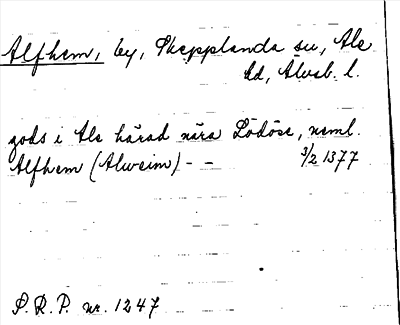 Alfhem, by, Skepplanda sn, Ale
hd, Älvsb. l.
gods i Ale härad nära Lödöse, neml.
Alfhem (Alweim) - - 3/2 1377
S. R. P. nr. 1247